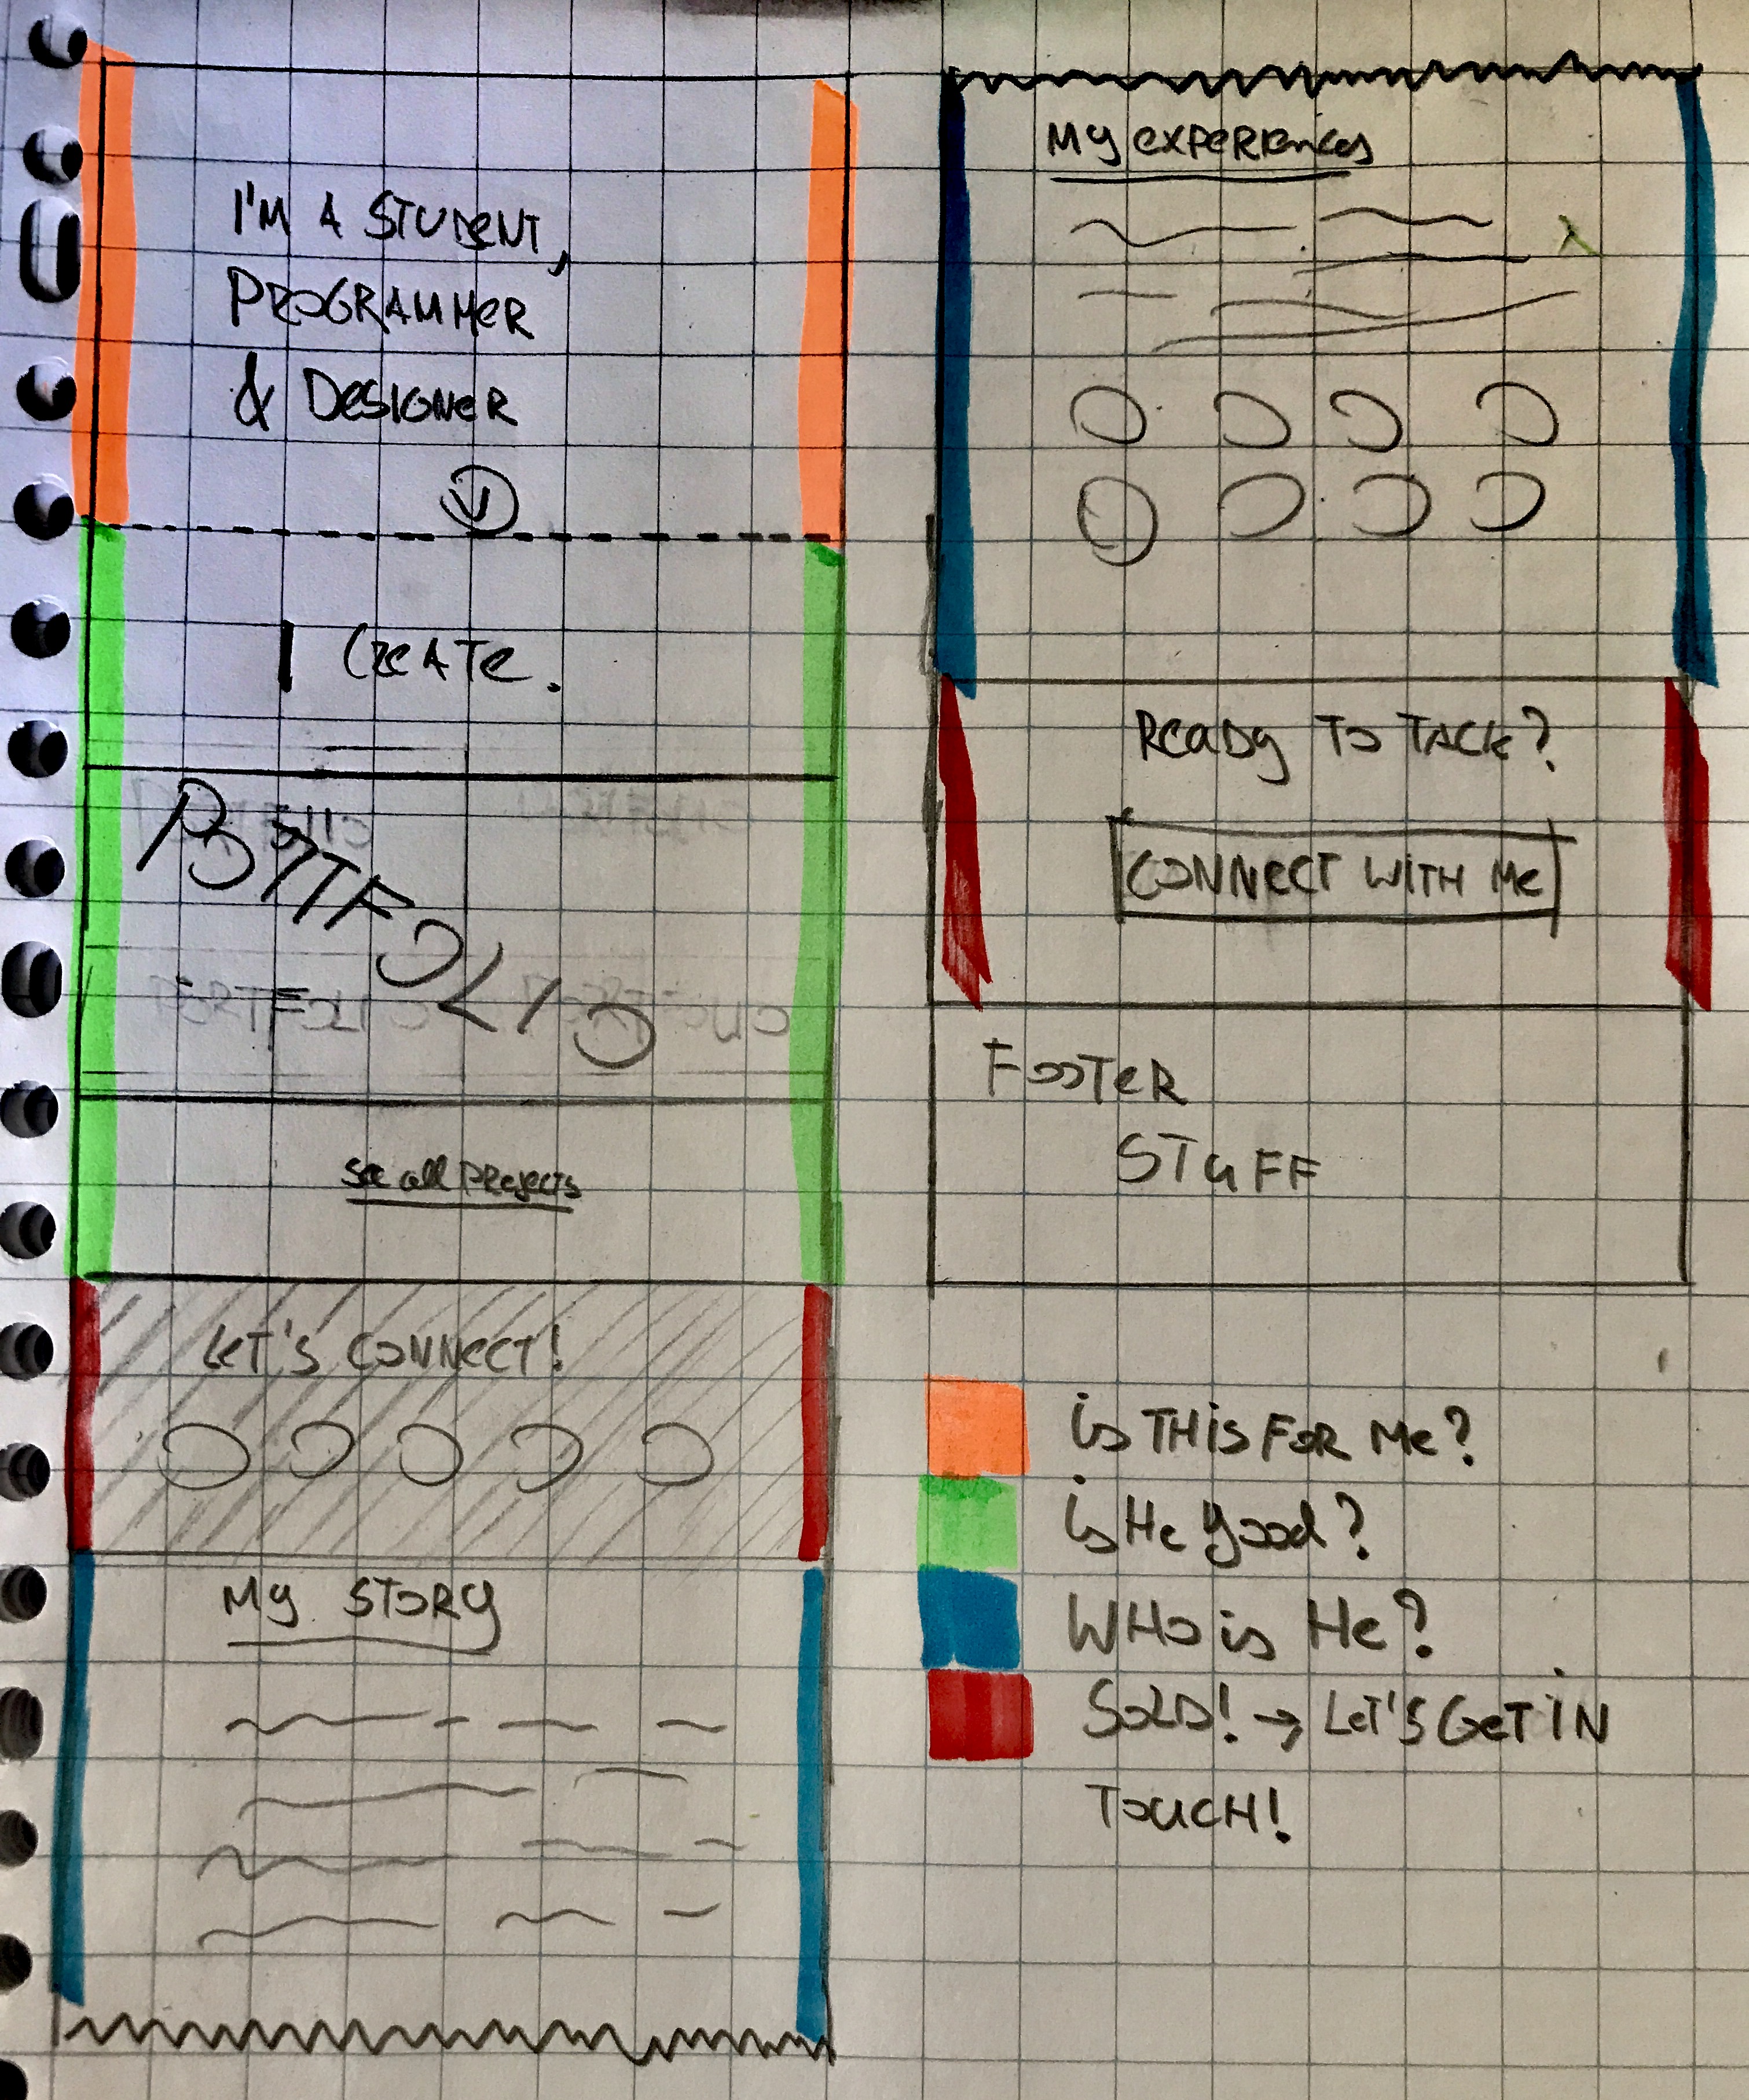 I'M A STUDENT,
PROGRAMMER
& DESIGNER
I CREATE.
PORTFOLIO
PORTFOLIO
see all PROJECTS
LET'S CONNECT!
MY STORY
MY EXPERIENCES
READY TO TALK?
CONNECT WITH ME
FOOTER
STUFF
is THis FOR Me?
is He good?
WHO is He?
SOLD! → LET'S GET IN
TOUCH!